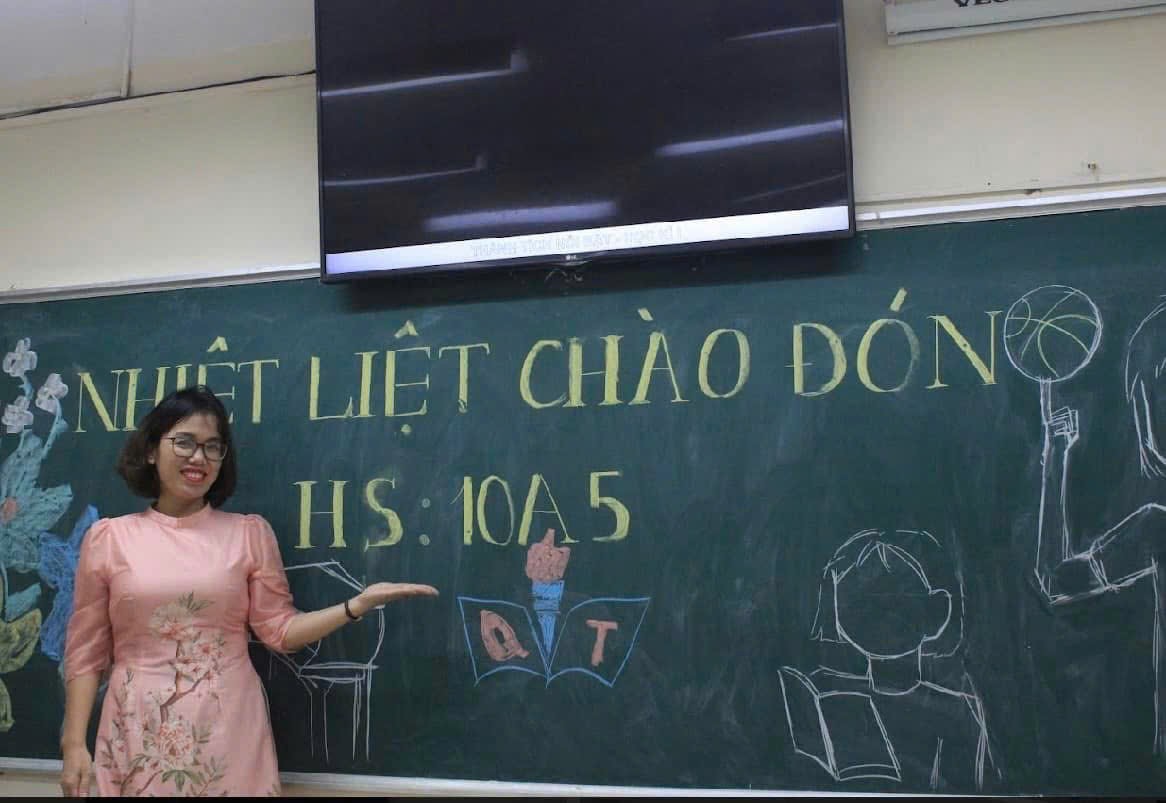 NHIỆT LIỆT CHÀO ĐÓN
HS: 10A5
Q T
LG